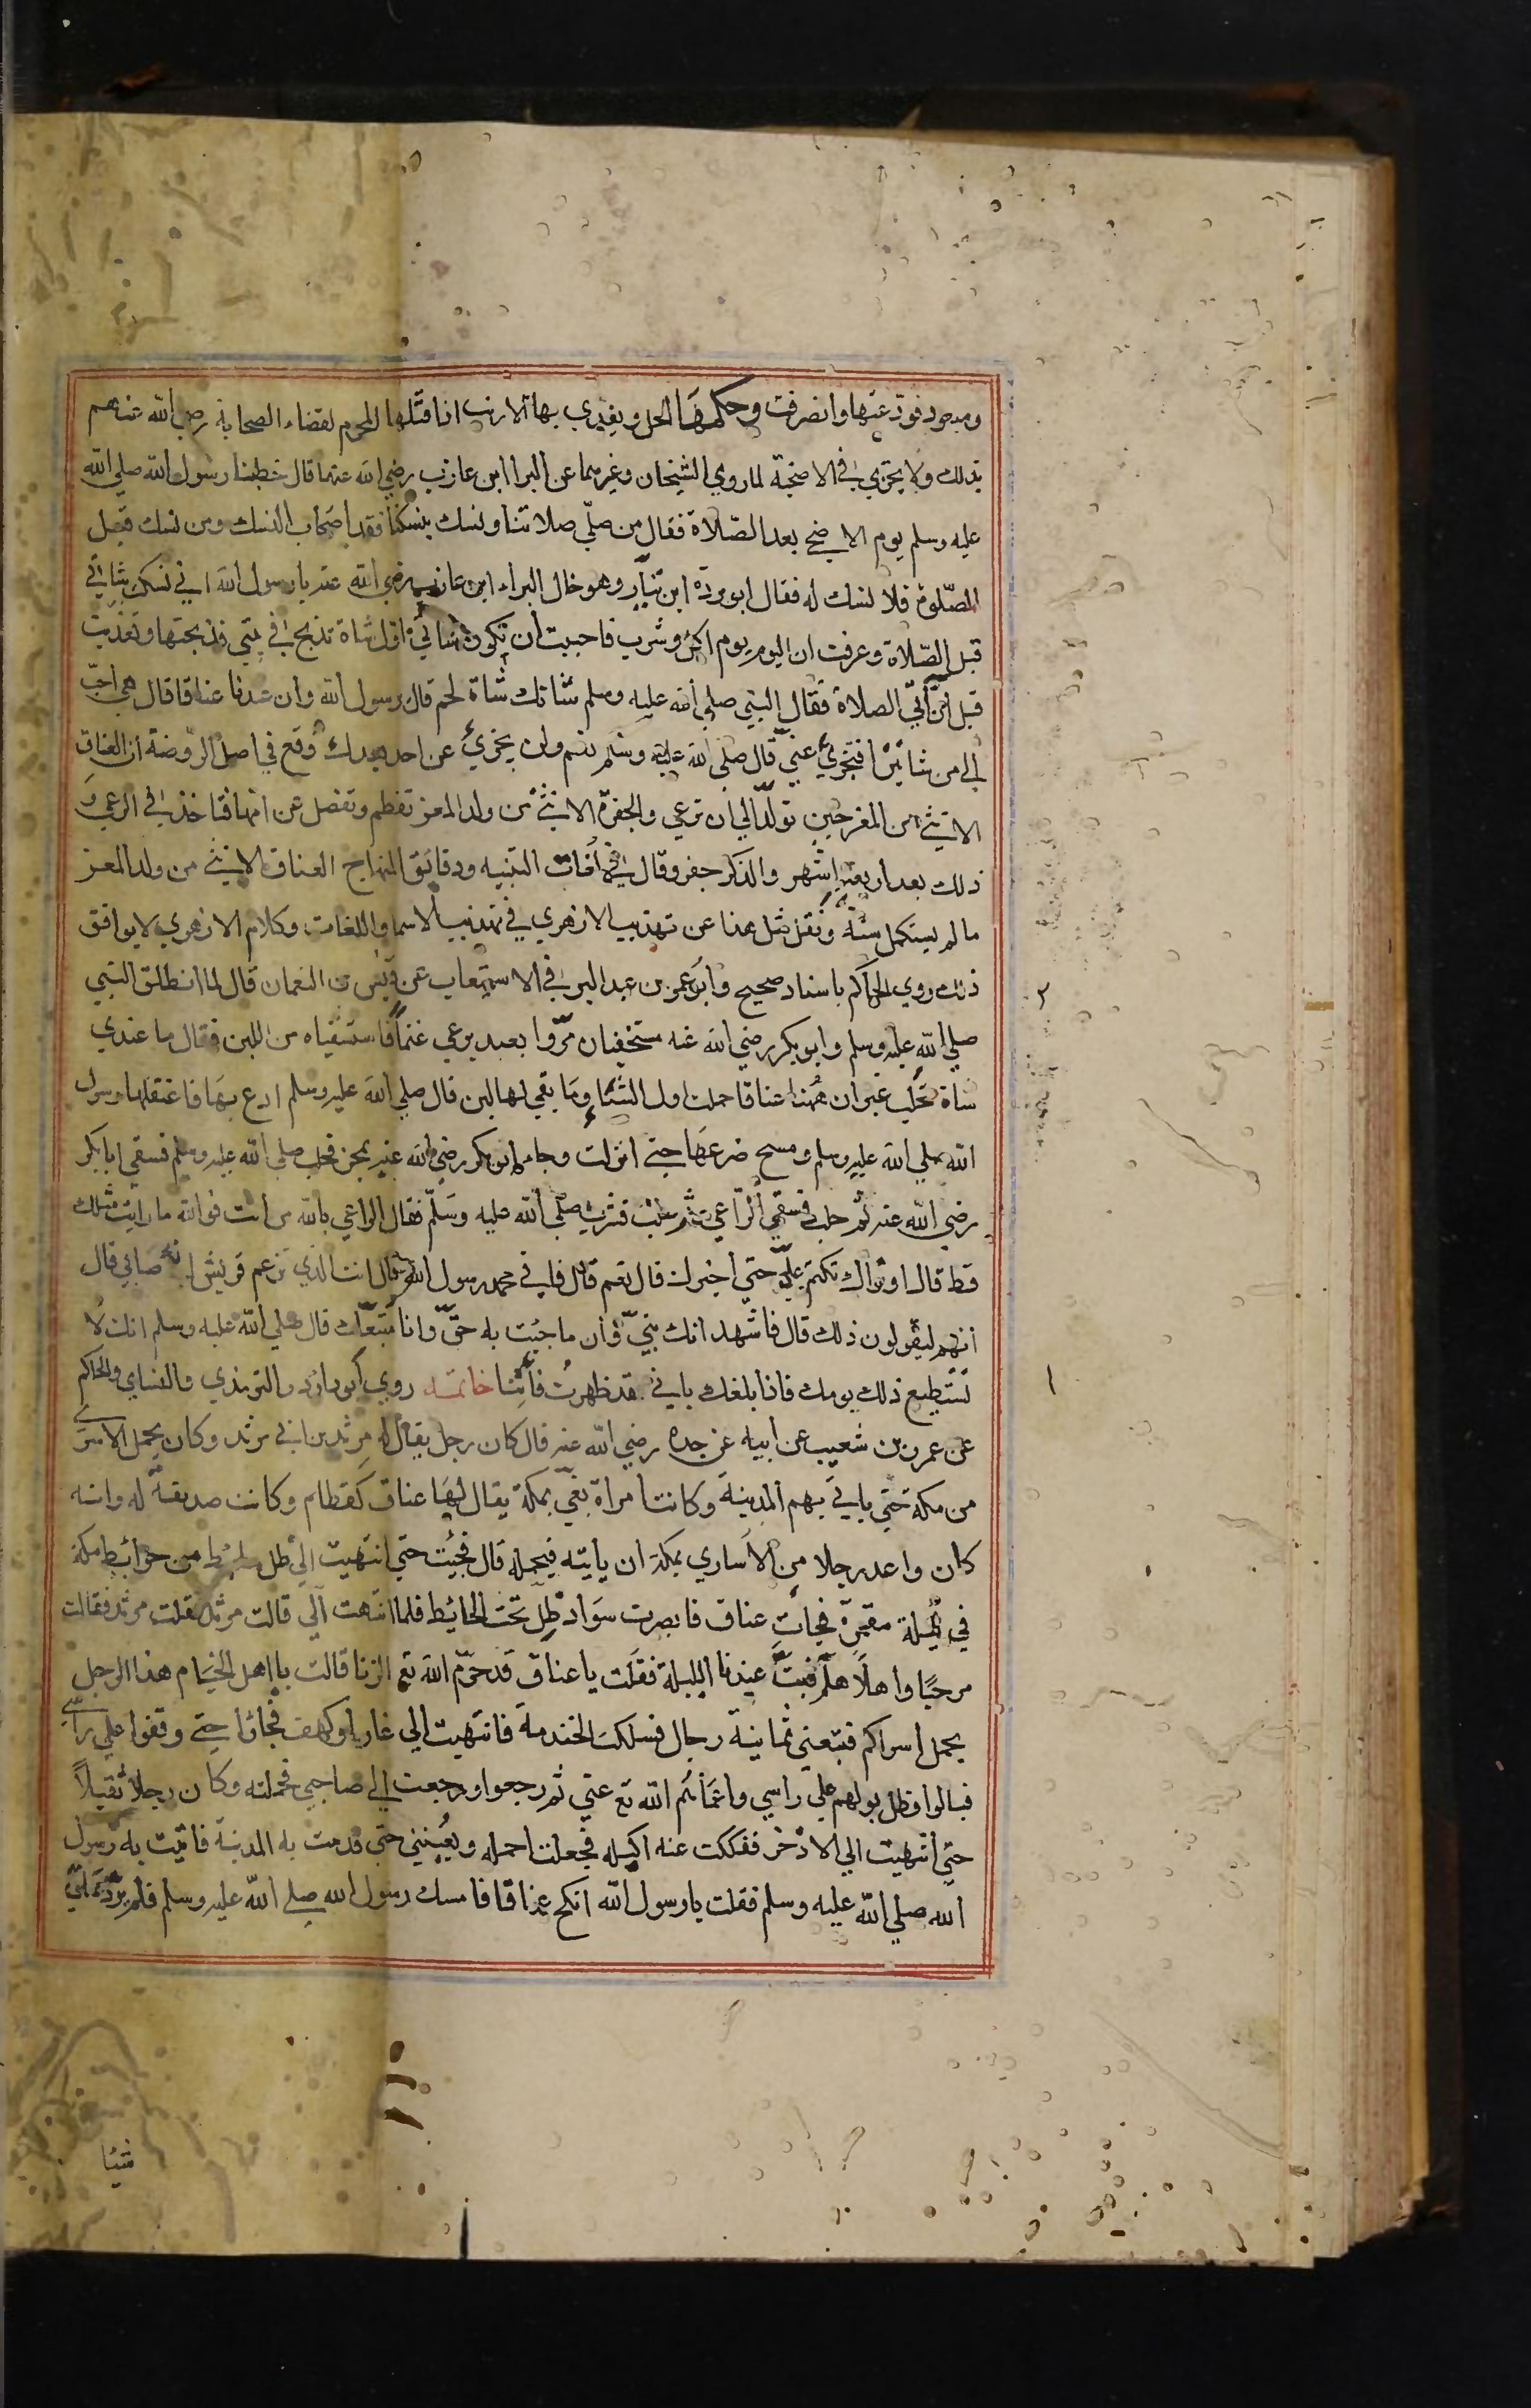 وموجود فودعتها وانصرفت وحكمها الحل ويفدي بها الارنب اذا قتلها المحرم لقضاء الصحابة رضي الله عنهم
بذلك ولا يجزي في الاضحية لما روي الشيخان وغيرهما عن البرا ابن عازب رضي الله عنهما قال خطبنا رسول الله صلي الله
عليه وسلم يوم الاضحي بعد الصلاة فقال من صلي صلاتنا ونسك بنسكنا فقد اصحاب النسك ومن نسك قبل
الصلوة فلا نسك له فقال ابو بردة ابن نيار وهو خال البراء ابن عازب رضي الله عنه يا رسول الله اني نسكت شاتي
قبل الصلاة وعرفت ان اليوم يوم اكل وشرب فاحببت ان تكون شاتي اول شاة تذبح في بيتي فذبحتها وتغذيت
قبل ان اتي الصلاة فقال النبي صلي الله عليه وسلم شاتك شاة لحم قال يرسول الله وان عندنا عناقا قال هي احب
الي من شاتين افتجزئ عني قال صلي الله عليه وسلم نعم ولن يجزئ عن احد بعدك وقع في اصل الروضة ان العناق
الانثي من المعز حين تولد الي ان ترعي والجفرة الانثي من ولد المعز تفطم وتفصل عن امها فتاخذ في الرعي و
ذلك بعد اربعة اشهر والذكر جفر وقال في لغات التنبيه ودقائق المنهاج العناق الانثي من ولد المعز
ما لم يستكمل سنة ونقل مثل هذا عن تهذيب الازهري في تهذيب الاسما واللغات وكلام الازهري لا يوافق
ذلك روي الحاكم باسناد صحيح وابو عمر بن عبد البر في الاستيعاب عن قيس بن النعمان قال لما انطلق النبي
صلي الله عليه وسلم وابو بكر رضي الله عنه مستخفيان مروا بعبد يرعي غنما فاستسقياه من اللبن فقال ما عندي
شاة تحلب غير ان ههنا عناقا حملت اول الشتاء وما بقي لها لبن قال صلي الله عليه وسلم ادع بها فاعتقلها رسول
الله صلي الله عليه وسلم ومسح ضرعها حتي انزلت وجاء ابو بكر رضي الله عنه بمجن فحلب صلي الله عليه وسلم فسقي ابا بكر
رضي الله عنه ثم حلب فسقي الراعي ثم حلب فشرب صلي الله عليه وسلم فقال الراعي بالله من انت فوالله ما رايت مثلك
قط قال او تراك تكتم علي حتي اخبرك قال نعم قال فاني محمد رسول الله قال انت الذي تزعم قريش انه صابي قال
انهم ليقولون ذلك قال فاشهد انك نبي وان ما جيت به حق وانا متبعك قال صلي الله عليه وسلم انك لا
تستطيع ذلك يومك فاذا بلغك باني قد ظهرت فأتنا خاتمة روي ابو داود والترمذي والنساي والحاكم
عن عمر بن شعيب عن ابيه عن جده رضي الله عنه قال كان رجل يقال له مرثد بن ابي مرثد وكان يحمل الاسري
من مكة حتي ياتي بهم المدينة وكانت امراة بغي بمكة يقال لها عناق كقطام وكانت صديقة له وانه
كان واعد رجلا من الاساري بمكة ان ياتيه فيحمله قال فجيت حتي انتهيت الي ظل حايط من حوائط مكة
في ليلة مقمرة فجات عناق فابصرت سواد ظل تحت الحائيط فلما انتهت الي قالت مرثد فقلت مرثد فقالت
مرحبا واهلا هلم فبت عندنا الليلة فقلت يا عناق قد حرم الله تع الزنا قالت يا اهل الخيام هذا الرجل
يحمل اسراكم فتبعني ثمانية رجال فسلكت الخندمة فانتهيت الي غار او كهف فجاؤا حتي وقفوا علي راسي
فبالوا وظل بولهم علي راسي واعماهم الله تع عني ثم رجعوا ورجعت الي صاحبي فحملته وكان رجلا ثقيلا
حتي انتهيت الي الادخر ففككت عنه اكبله فجعلت احمله ويعيينني حتي قدمت به المدينة فاتيت به رسول
الله صلي الله عليه وسلم فقلت يا رسول الله انكح عناقا فامسك رسول الله صلي الله عليه وسلم فلم يرد علي
شيئا